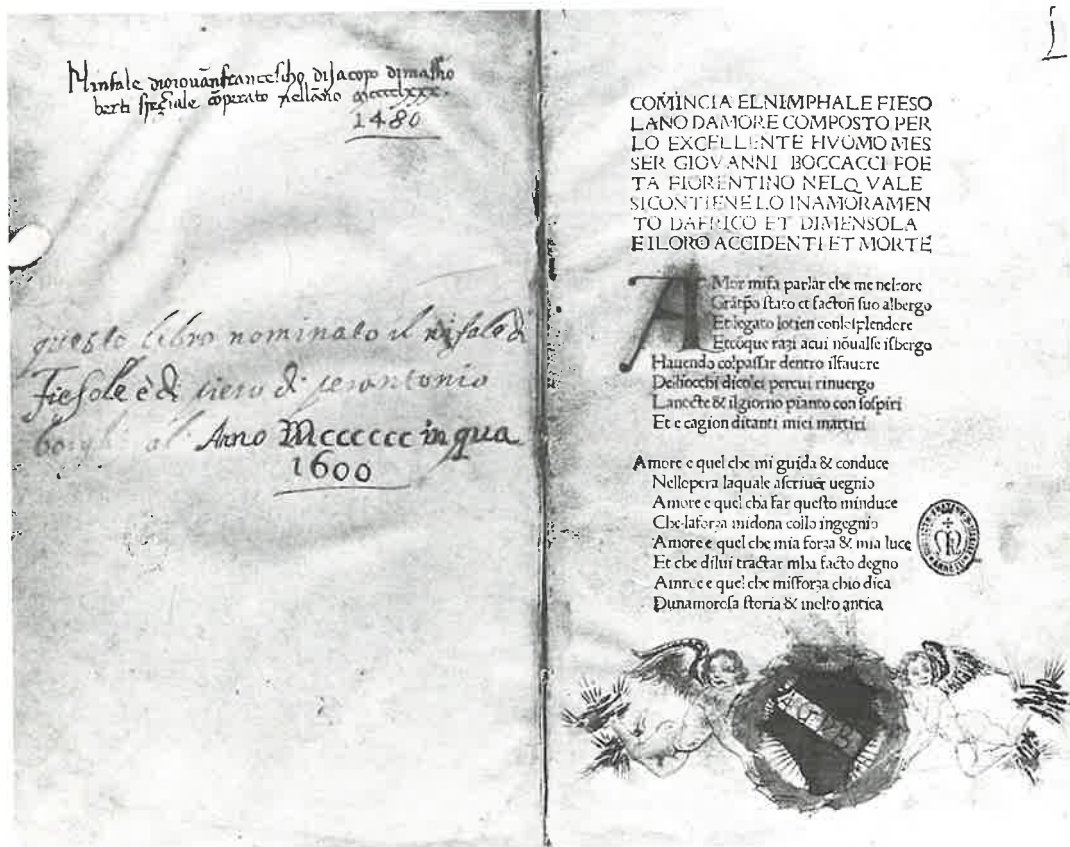 Ninfale di giovanfrancescho di Jacopo di masho
berti speziale comperato nellano mcccclxxx.
1480
questo libro nominato il nifale di
Fiesole è di piero di serantonio
al Anno Mcccccc in qua
1600
COMINCIA ELNIMPHALE FIESO
LANO DAMORE COMPOSTO PER
LO EXCELLENTE HVOMO MES
SER GIOVANNI BOCCACCI POE
TA FIORENTINO NELQVALE
SICONTIENE LO INAMORAMEN
TO DAFRICO ET DIMENSOLA
E ILORO ACCIDENTI ET MORTE
AMor mifa parlar che me nelcore
Gratpo stato et factoñ suo albergo
Et legato lotien conlosplendore
Et coque razi acui nõualse isbergo
Hauendo colpassar dentro ilfauore
Dellocchi dicolei percui rinuergo
Lanocte & ilgiorno pianto con sospiri
Et e cagion ditanti miei martiri
Amore e quel che mi guida & conduce
Nellopera laquale ascriuer uegnio
Amore e quel cha far questo minduce
Che laforza midona collo ingegnio
Amore e quel che mia forza & mia luce
Et che dilui tractar mha facto degno
Amore e quel che misforza chio dica
Dunamorosa storia & molto antica